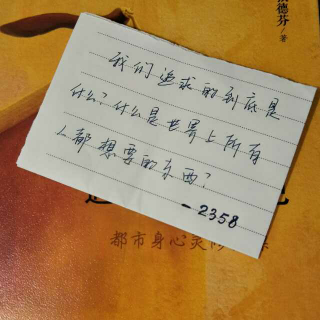 德芬/著
我们追求的到底是
什么?什么是世界上所有
人都想要的东西?
-2358
都市身心灵修